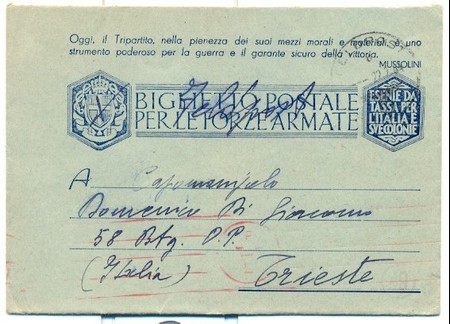 Oggi, il Tripartito, nella pienezza dei suoi mezzi morali e materiali, è uno
strumento poderoso per la guerra e il garante sicuro della vittoria.
MUSSOLINI
BIGLIETTO POSTALE
PER LE FORZE ARMATE
ESENTE DA
TASSA PER
L'ITALIA E
SUE COLONIE
A
Domenico Di Giacomo
58 Btg.
(Italia) Trieste